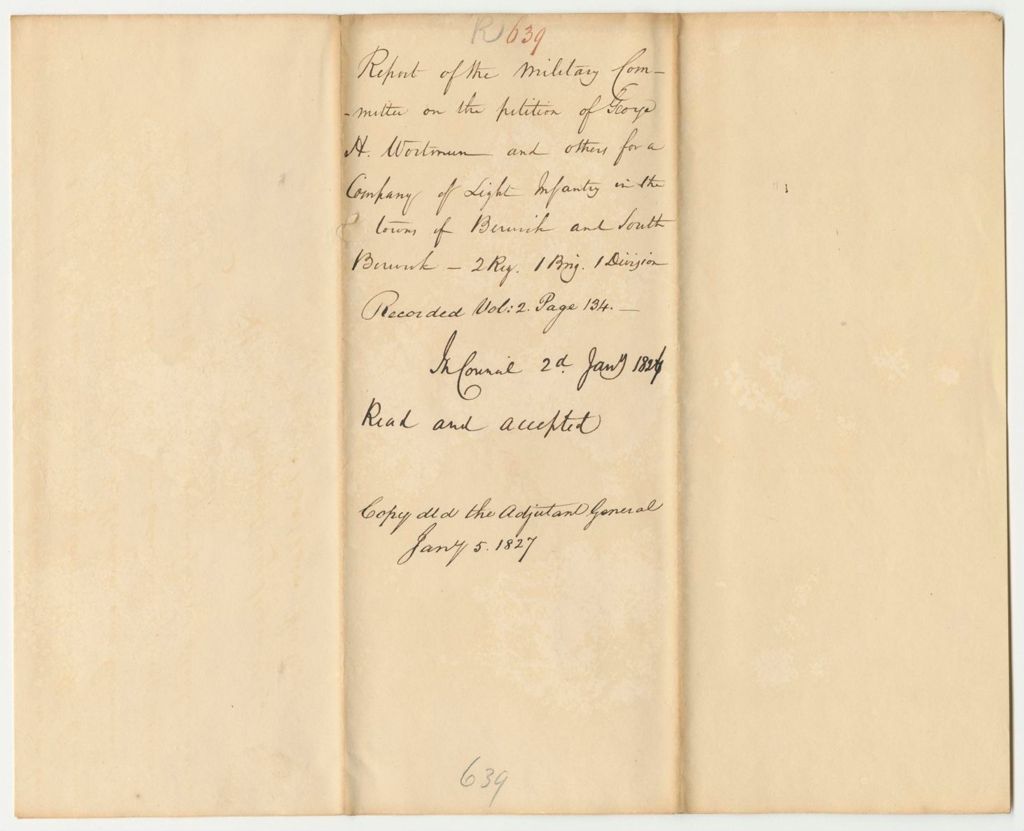 R 639
Report of the Military Com-
-mittee on the petition of George
H. Wortman and others for a
Company of Light Infantry in the
towns of Berwick and South
Berwick - 2 Reg. 1 Brig. 1 Division
Recorded Vol: 2. Page 134. -
In Council 2d Jany 1827
Read and accepted
Copy dld the Adjutant General
Jany 5. 1827
639